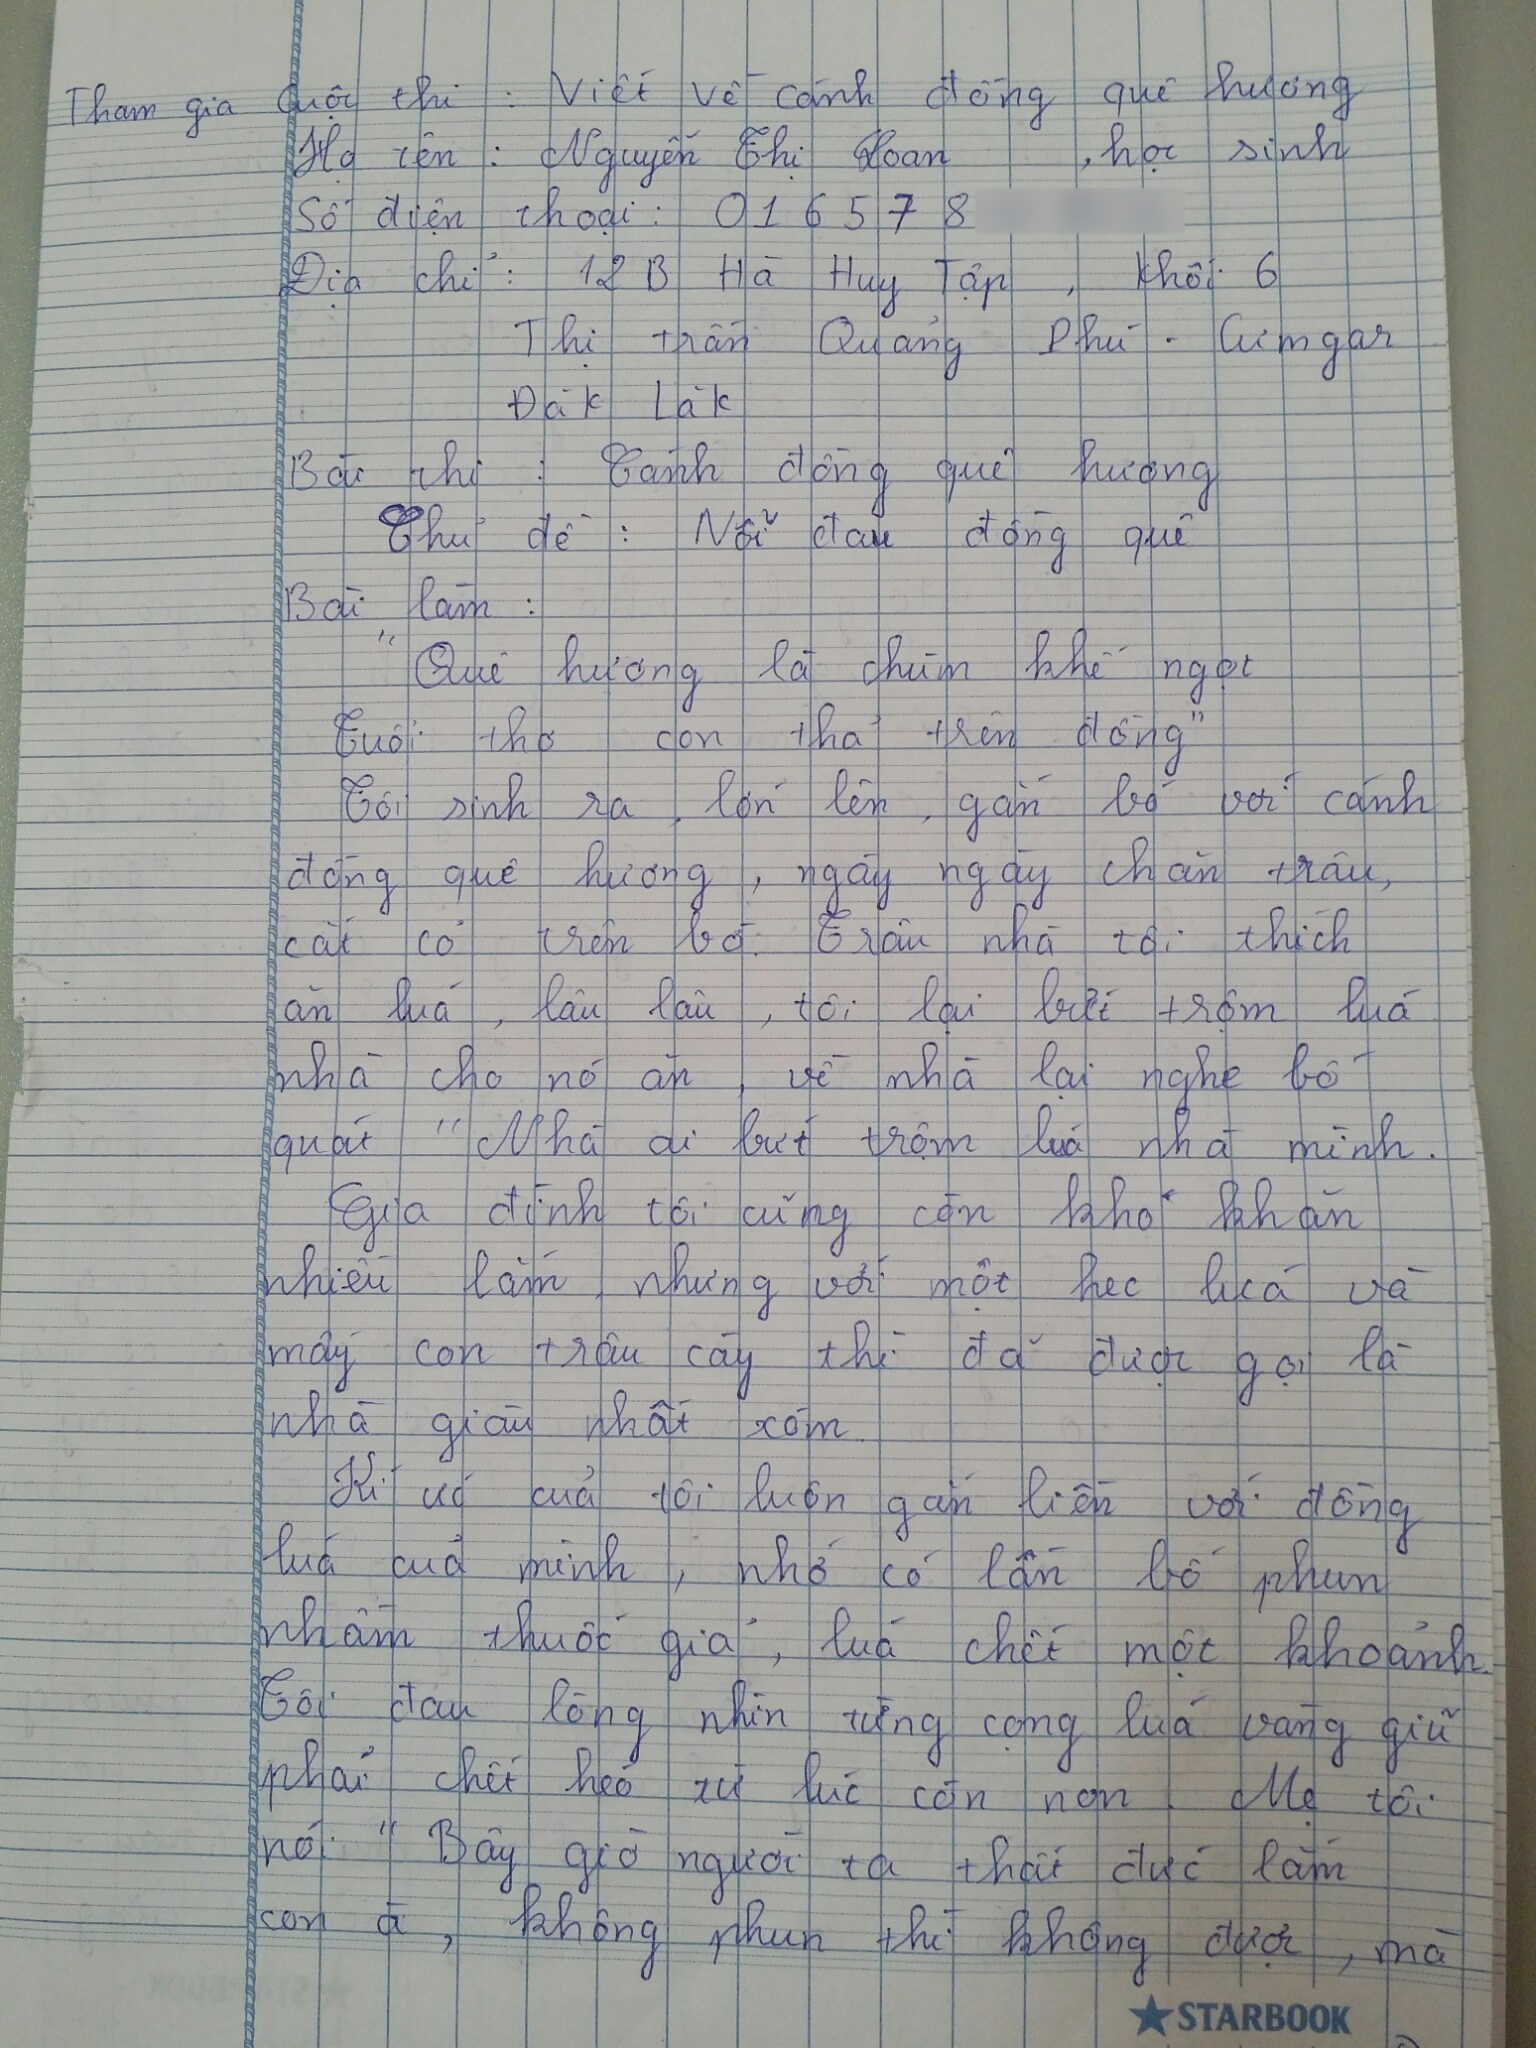 Tham gia cuộc thi : Viết về cánh đồng quê hương
Họ tên : Nguyễn Thị Hoan , học sinh
Số điện thoại : 0 1 6 5 7 8
Địa chỉ : 12 B Hà Huy Tập , khối 6
Thị trấn Quảng Phú - Cưmgar
Đăk Lăk
Bài thi : Cánh đồng quê hương
Chủ đề : Nỗi đau đồng quê
Bài làm :
"Quê hương là chùm khế ngọt
Tuổi thơ con thả trên đồng"
Tôi sinh ra, lớn lên, gắn bó với cánh
đồng quê hương, ngày ngày chăn trâu,
cắt cỏ trên bờ. Trâu nhà tôi thích
ăn lúa, lâu lâu, tôi lại bứt trộm lúa
nhà cho nó ăn, về nhà lại nghe bố
quát "Nhà ai bứt trộm lúa nhà mình.
Gia đình tôi cũng còn khó khăn
nhiều lắm, nhưng với một hec lúa và
mấy con trâu cày thì đã được gọi là
nhà giàu nhất xóm.
Kí ức của tôi luôn gắn liền với đồng
lúa của mình, nhớ có lần bố phun
nhầm thuốc giả, lúa chết một khoảnh.
Tôi đau lòng nhìn từng cọng lúa vàng giữ
phải chết héo từ lúc còn non. Mẹ tôi
nói "Bây giờ người ta thất đức lắm
con à, không phun thì không được, mà
★STARBOOK